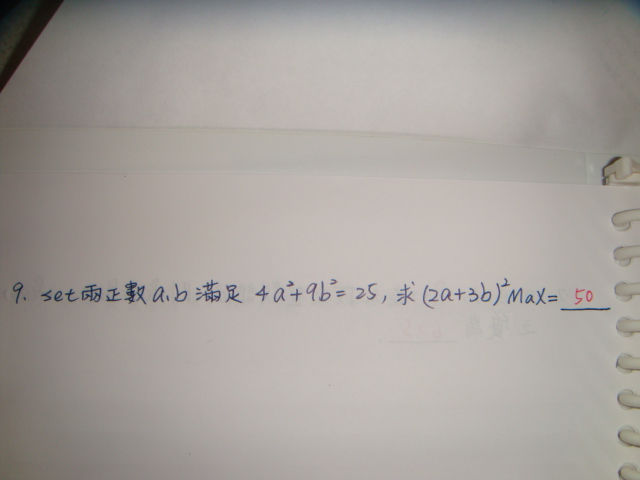 9. set兩正數a、b滿足 4a²+9b²=25, 求(2a+3b)²Max= 50